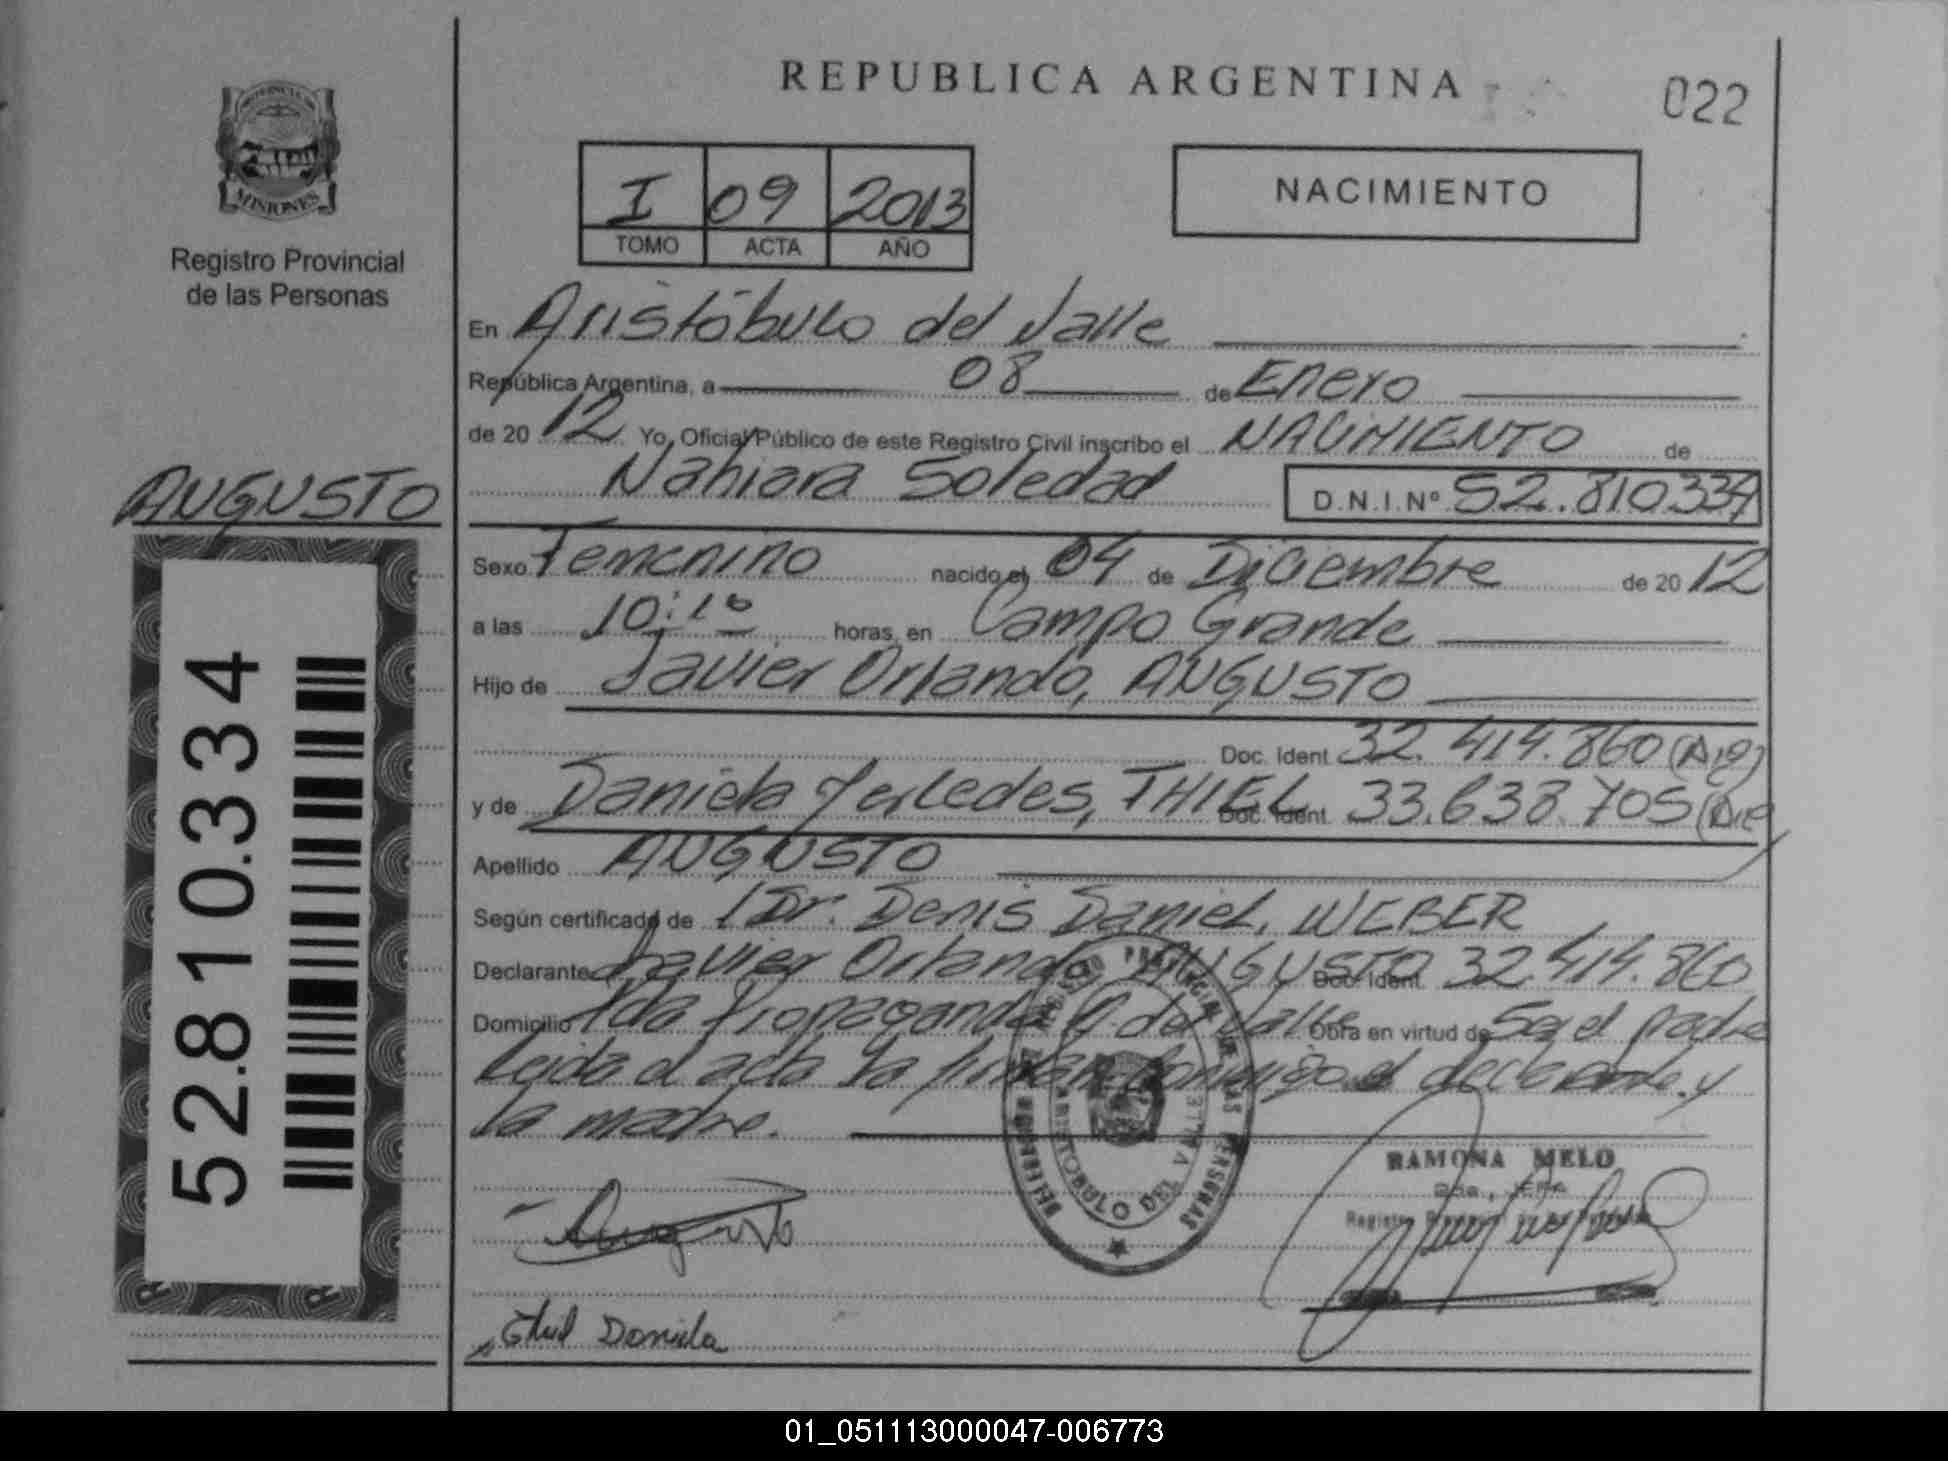 REPUBLICA ARGENTINA
022
PROVINCIA DE
MISIONES
Registro Provincial
de las Personas
I 09 2013
TOMO ACTA AÑO
NACIMIENTO
En Aristóbulo del Valle
República Argentina, a 08 de Enero
de 2012 Yo, Oficial Público de este Registro Civil inscribo el NACIMIENTO de
Nahiara Soledad D.N.I.Nº 52.810334
ANGUSTO
52.810.334
Sexo Femenino nacido el 04 de Diciembre de 2012
a las 10:10 horas, en Campo Grande
Hijo de Javier Orlando, ANGUSTO
Doc. Ident 32.414.860 (Arg)
y de Daniela Mercedes, THIEL Doc. Ident. 33.638.705
Apellido ANGUSTO
Según certificado de Dr. Denis Daniel, WEBER
Declarante Javier Orlando ANGUSTO Doc. Ident. 32.414.860
Domicilio Pda Propaganda A. del Valle Obra en virtud de Ser el padre
Leida el acta la firman conmigo el declarante y
la madre.
REGISTRO PROVINCIAL DE LAS PERSONAS
ARISTOBULO DEL VALLE
RAMONA MELO
Angusto
Thiel Daniela
01_051113000047-006773